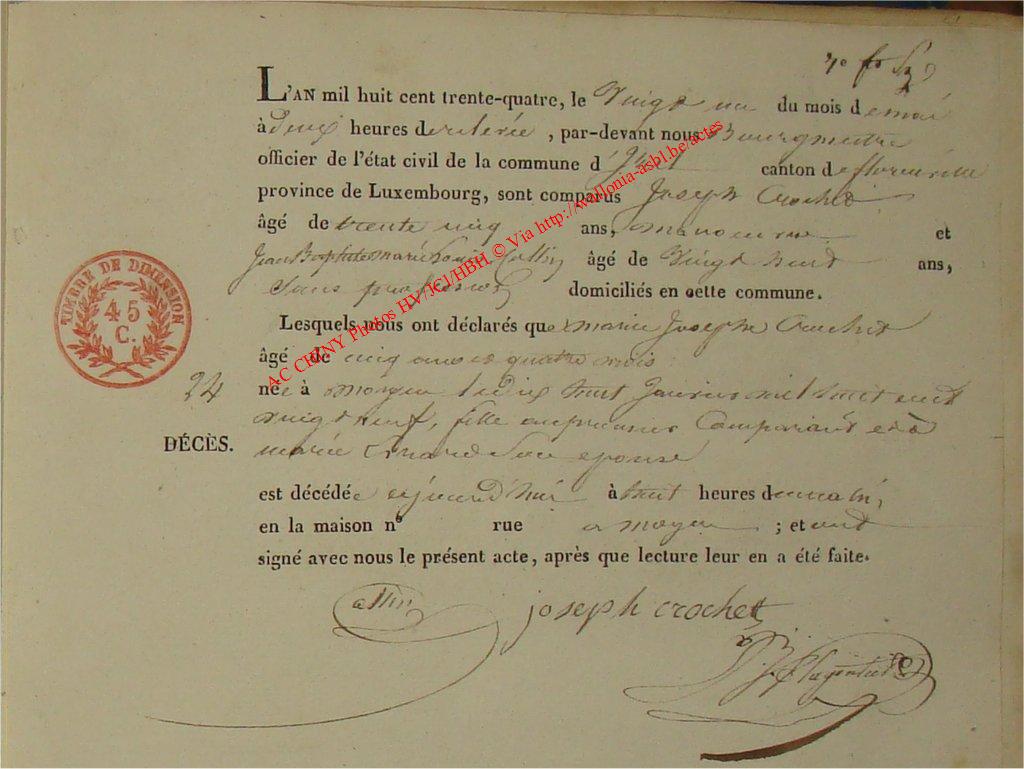 L'AN mil huit cent trente-quatre, le Vingt un du mois de mai
à deux heures de relevée, par-devant nous Bourgmestre
officier de l'état civil de la commune d' canton de florenville
province de Luxembourg, sont comparus Joseph Crochet
âgé de trente cinq ans, manoeuvre et
Jean Baptiste marie Louis Collin âgé de Vingt huit ans,
Sans profession domiciliés en cette commune.
Lesquels nous ont déclarés que marie Joseph Crochet
âgé de cinq ans et quatre mois
née à moyen le dix huit Janvier mil huit cent
vingt neuf, fille du premier Comparant et à
marie Son épouse
est décédée aujourd'hui à huit heures du matin,
en la maison n° rue a moyen ; et ont
signé avec nous le présent acte, après que lecture leur en a été faite.
24
DÉCÈS.
TIMBRE DE DIMENSION
45
C.
Collin
joseph crochet
AC CHINY Photos HV/JCJ/HBH. © Via http://wallonia-asbl.be/actes